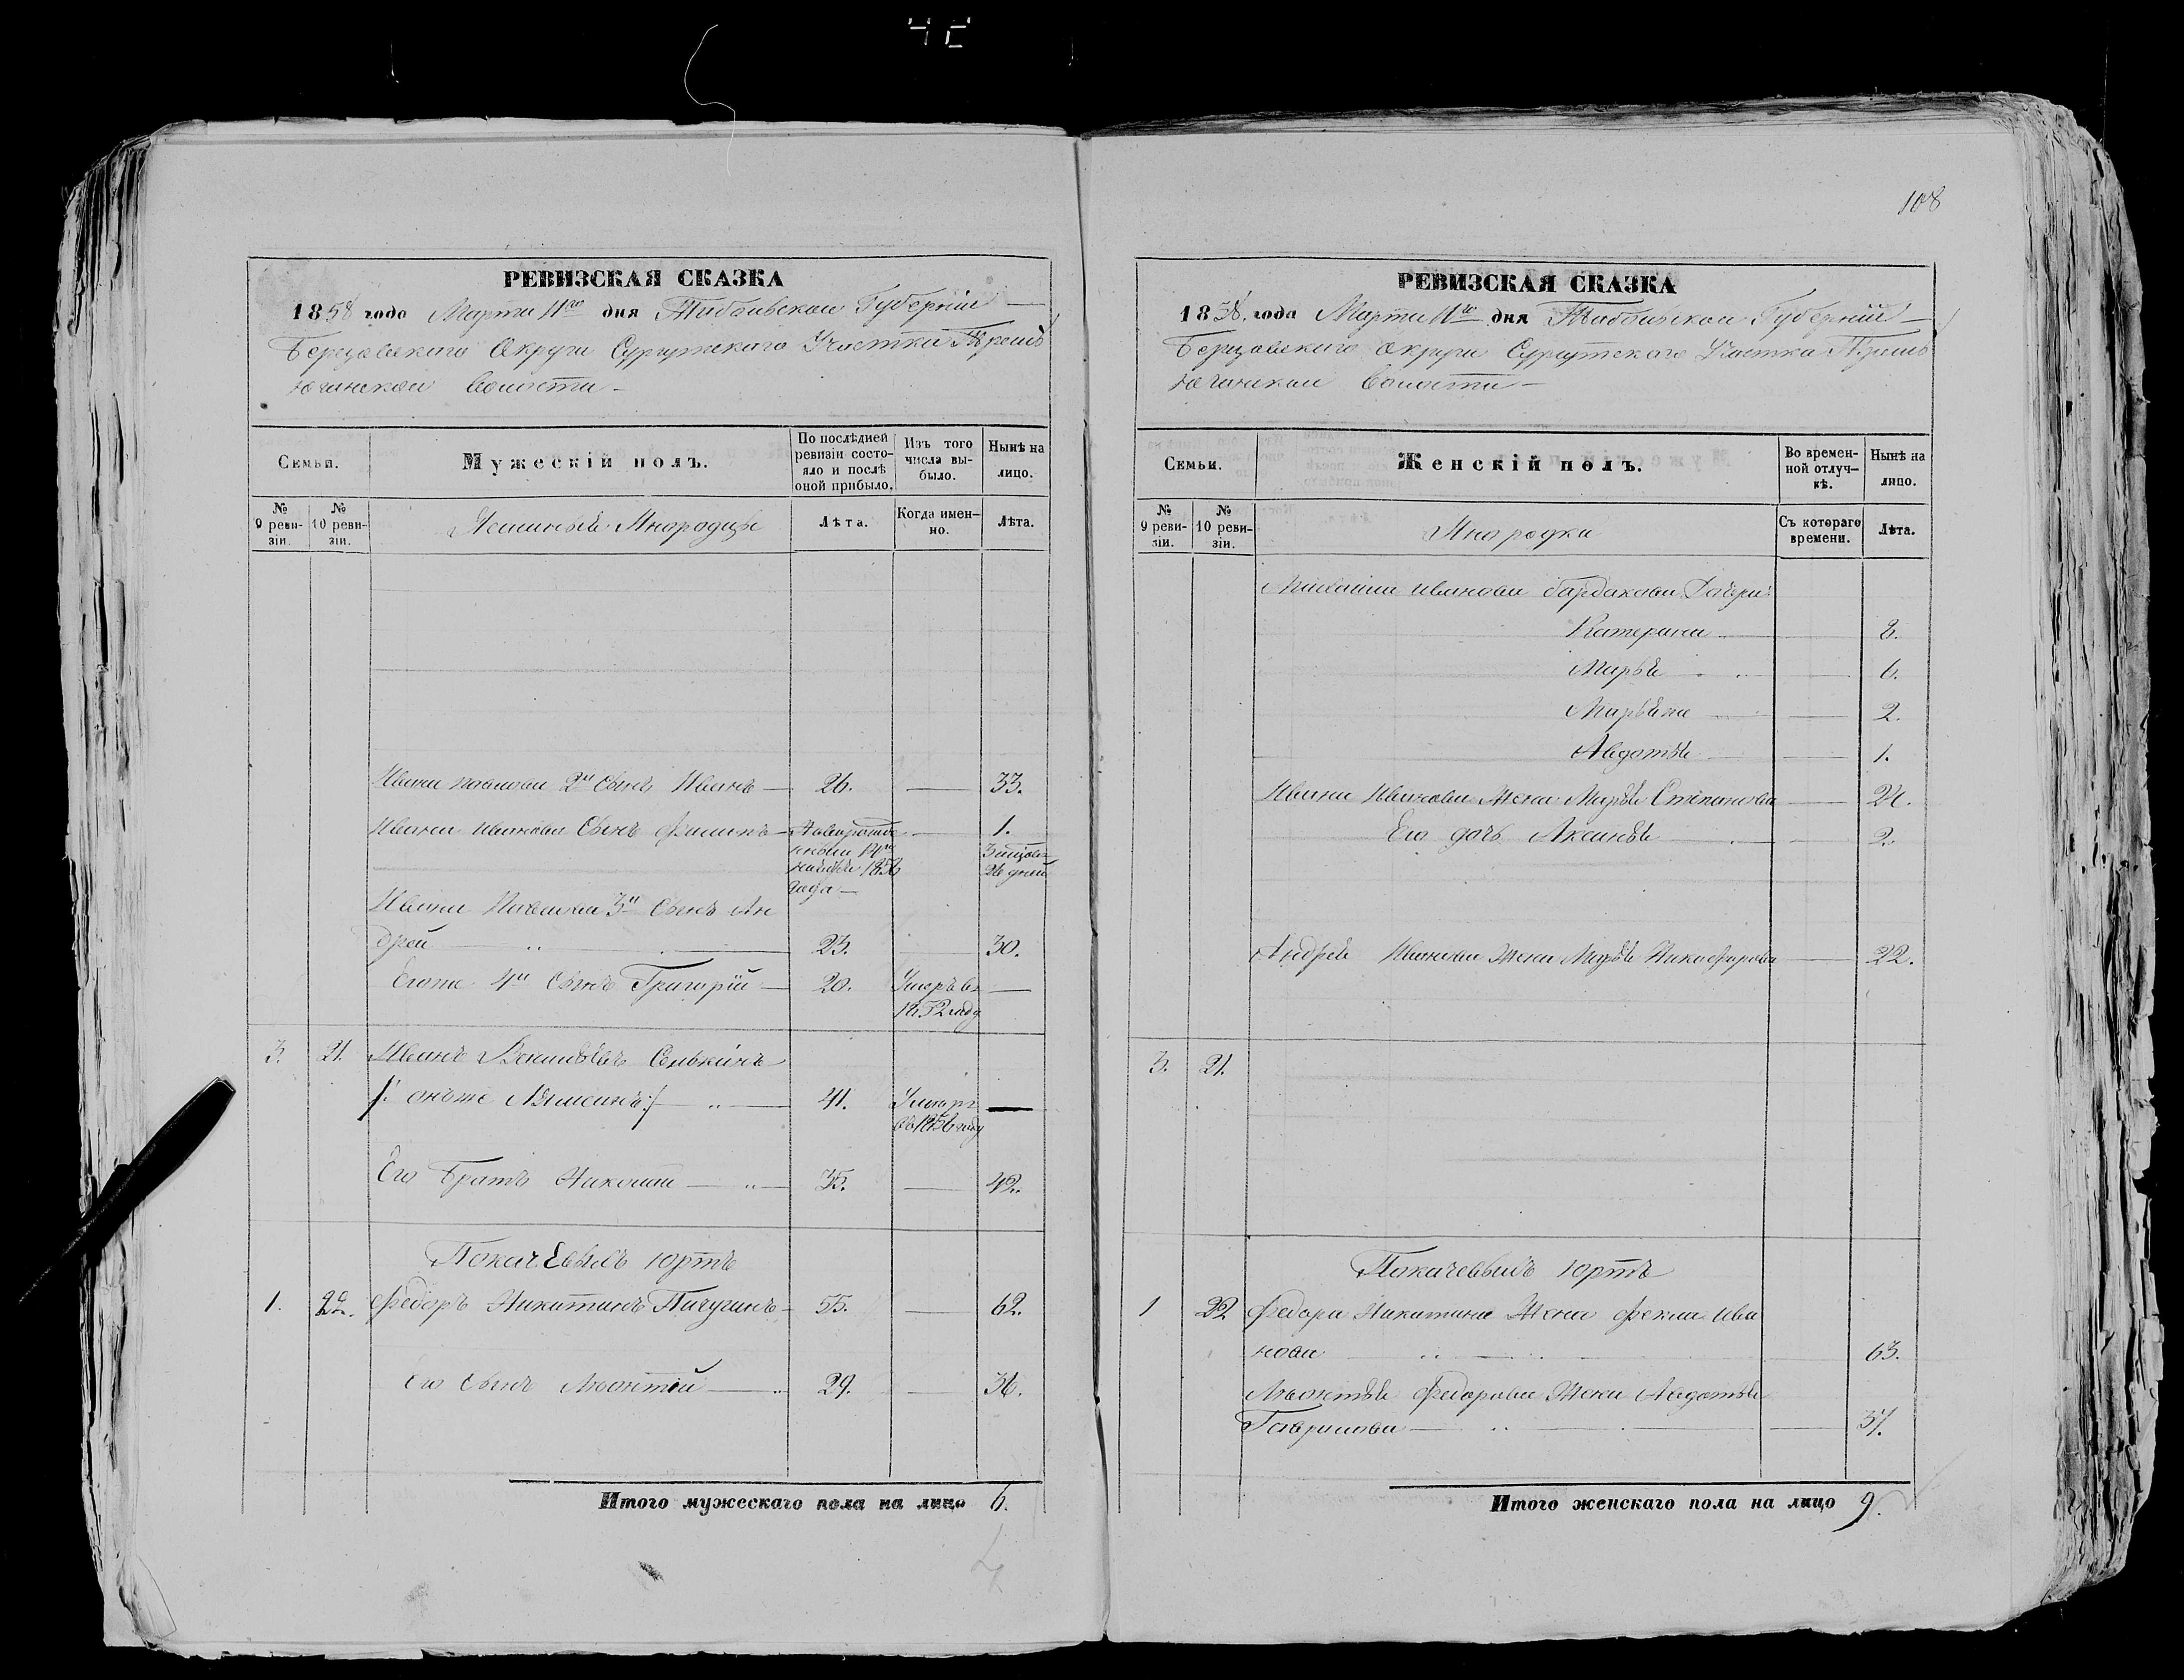 108
РЕВИЗСКАЯ СКАЗКА
1858 года Марта 11го дня Тобольской Губерніи
Березовскаго Округа Сургутскаго Участка
юганской волости
Семьи.
Мужескій полъ.
По послѣдней ревизіи состояло и послѣ оной прибыло.
Изъ того числа выбыло.
Нынѣ на лицо.
№ 9 ревизіи.
№ 10 ревизіи.
Ясашныя Инородцы
Лѣта.
Когда именно.
Лѣта.
Ивана Павлова 2й Сынъ Иванъ 26. 33.
Ивана Иванова Сынъ Филипъ 1.
1856
года
26 дней
Ивана Павлова 3й Сынъ Ан
дрей 23. 30.
Егоже 4й Сынъ Григорій 20. Умеръ въ
1852 году
3. 21. Иванъ
онъже 41. Умеръ
въ 1856 году
Его Братъ Николай 35. 42.
Покачевыхъ юртъ
1. 22. Федоръ Никитинъ Пичугинъ 55. 62.
Его Сынъ Леонтій 29. 36.
Итого мужескаго пола на лицо 6.
РЕВИЗСКАЯ СКАЗКА
1858. года Марта 11го дня Тобольской Губерніи
Березовскаго Округа Сургутскаго Участка
юганской волости
Семьи.
Женскій полъ.
Во временной отлучкѣ.
Нынѣ на лицо.
№ 9 ревизіи.
№ 10 ревизіи.
Инородки
Съ котораго времени.
Лѣта.
Иванова Дочери
Катерина 8.
Марья 6.
2.
Авдотья 1.
Ивана Иванова Жена Марья Степанова 24.
Его дочь Аксинья 2.
Андрея Иванова Жена Марья Никифорова 22.
3. 21.
Покачевыхъ юртъ
1 22 Федора Никитина Жена Фекла Ива
нова 63.
Леонтья Федорова Жена Авдотья
Гаврилова 37.
Итого женскаго пола на лицо 9.